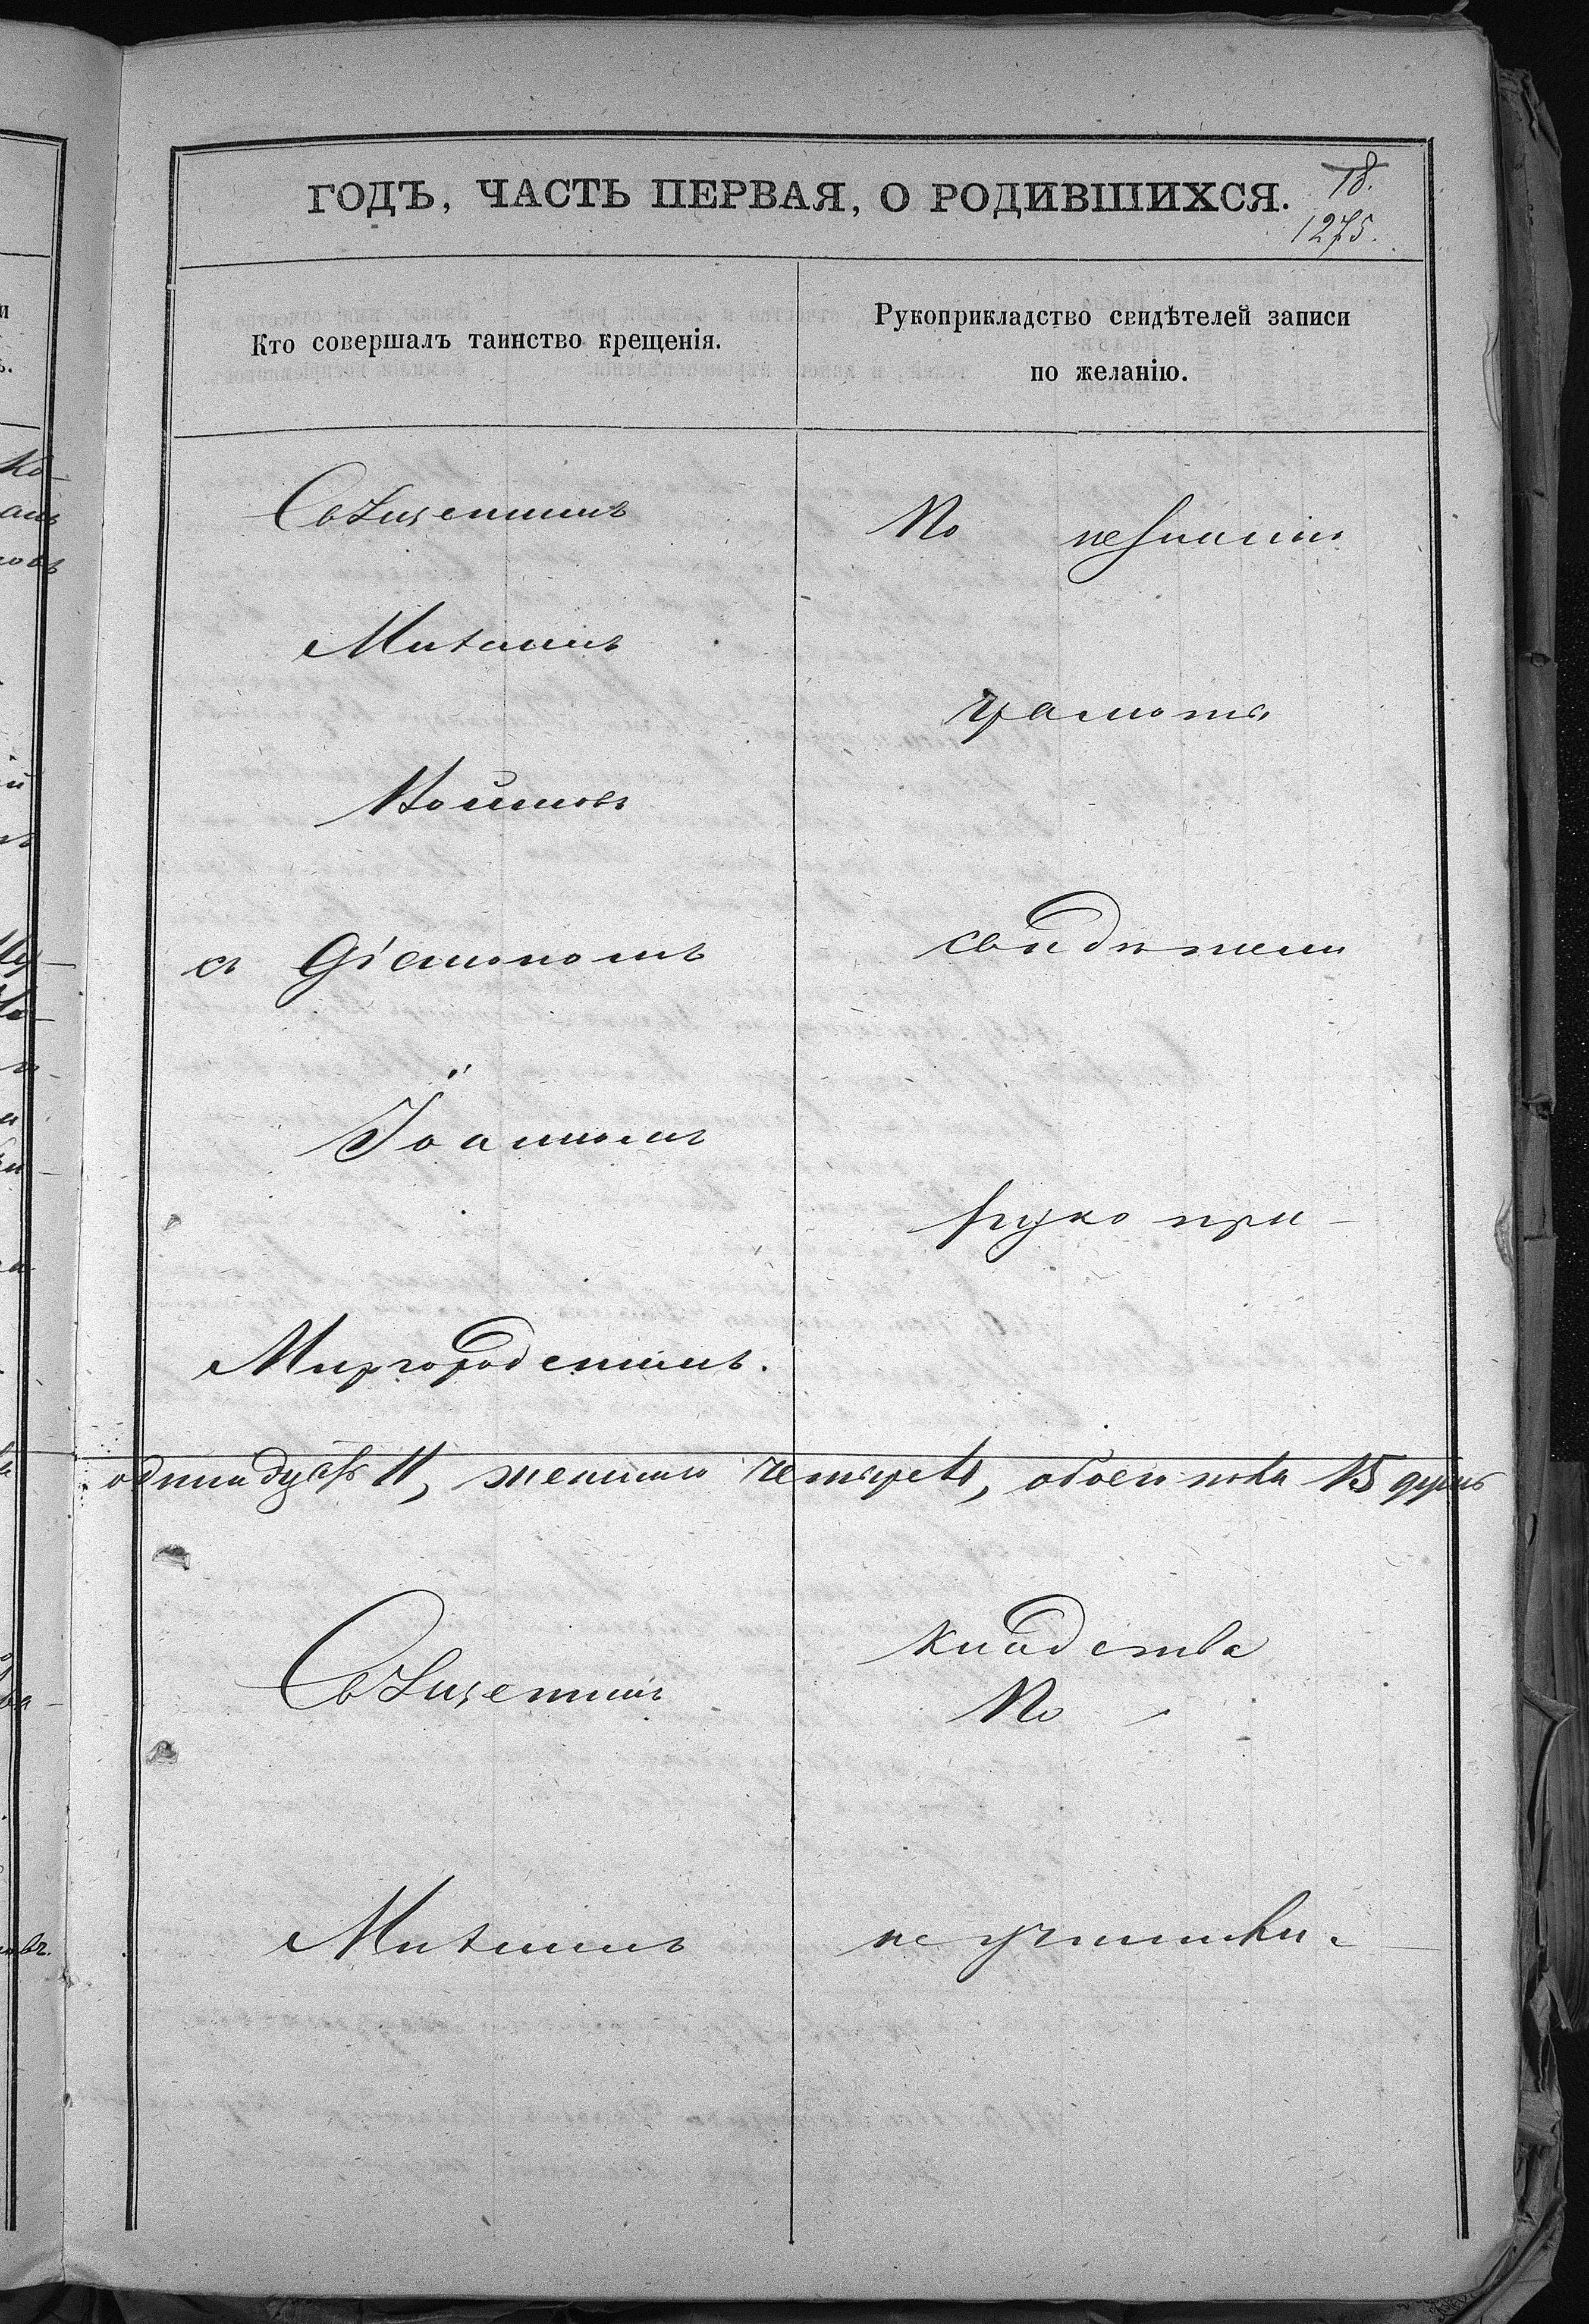 ГОДЪ, ЧАСТЬ ПЕРВАЯ, О РОДИВШИХСЯ.
18.
1275.
Кто совершалъ таинство крещенія.
Рукоприкладство свидѣтелей записи
по желанію.
Священникъ
Михаилъ
Войновъ
съ Діакономъ
Іоанномъ
Миргородскимъ.
По незнанію
грамоты
свидѣтели
рукопри-
одинадцать 11, женска четыре 4, обоего пола 15 душъ
Священникъ
Михаилъ
кладства
По
не учинили.